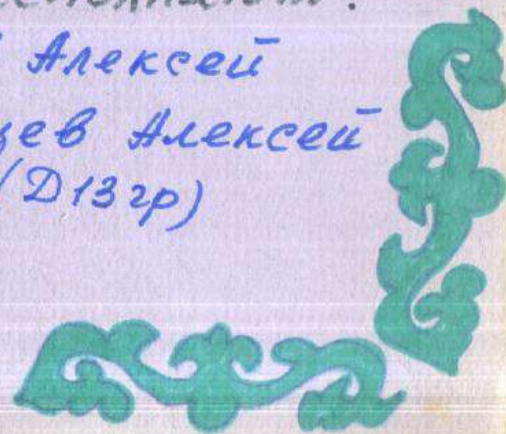 Алексей
цев Алексей
(Д13 гр)